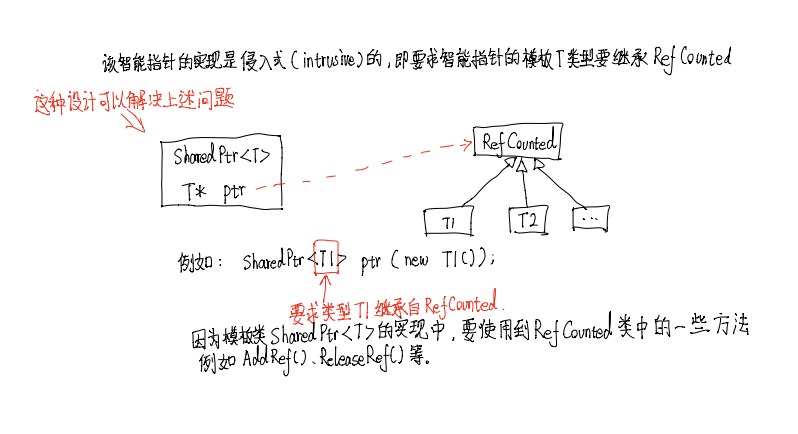 该智能指针的实现是侵入式(intrusive)的,即要求智能指针的模板T类型要继承RefCounted
这种设计可以解决上述问题
SharedPtr<T>
T* ptr
RefCounted
T1
T2
...
例如: SharedPtr<T1> ptr (new T1());
要求类型T1继承自RefCounted.
因为模板类SharedPtr<T>的实现中,要使用到RefCounted类中的一些方法
例如AddRef()、ReleaseRef()等。